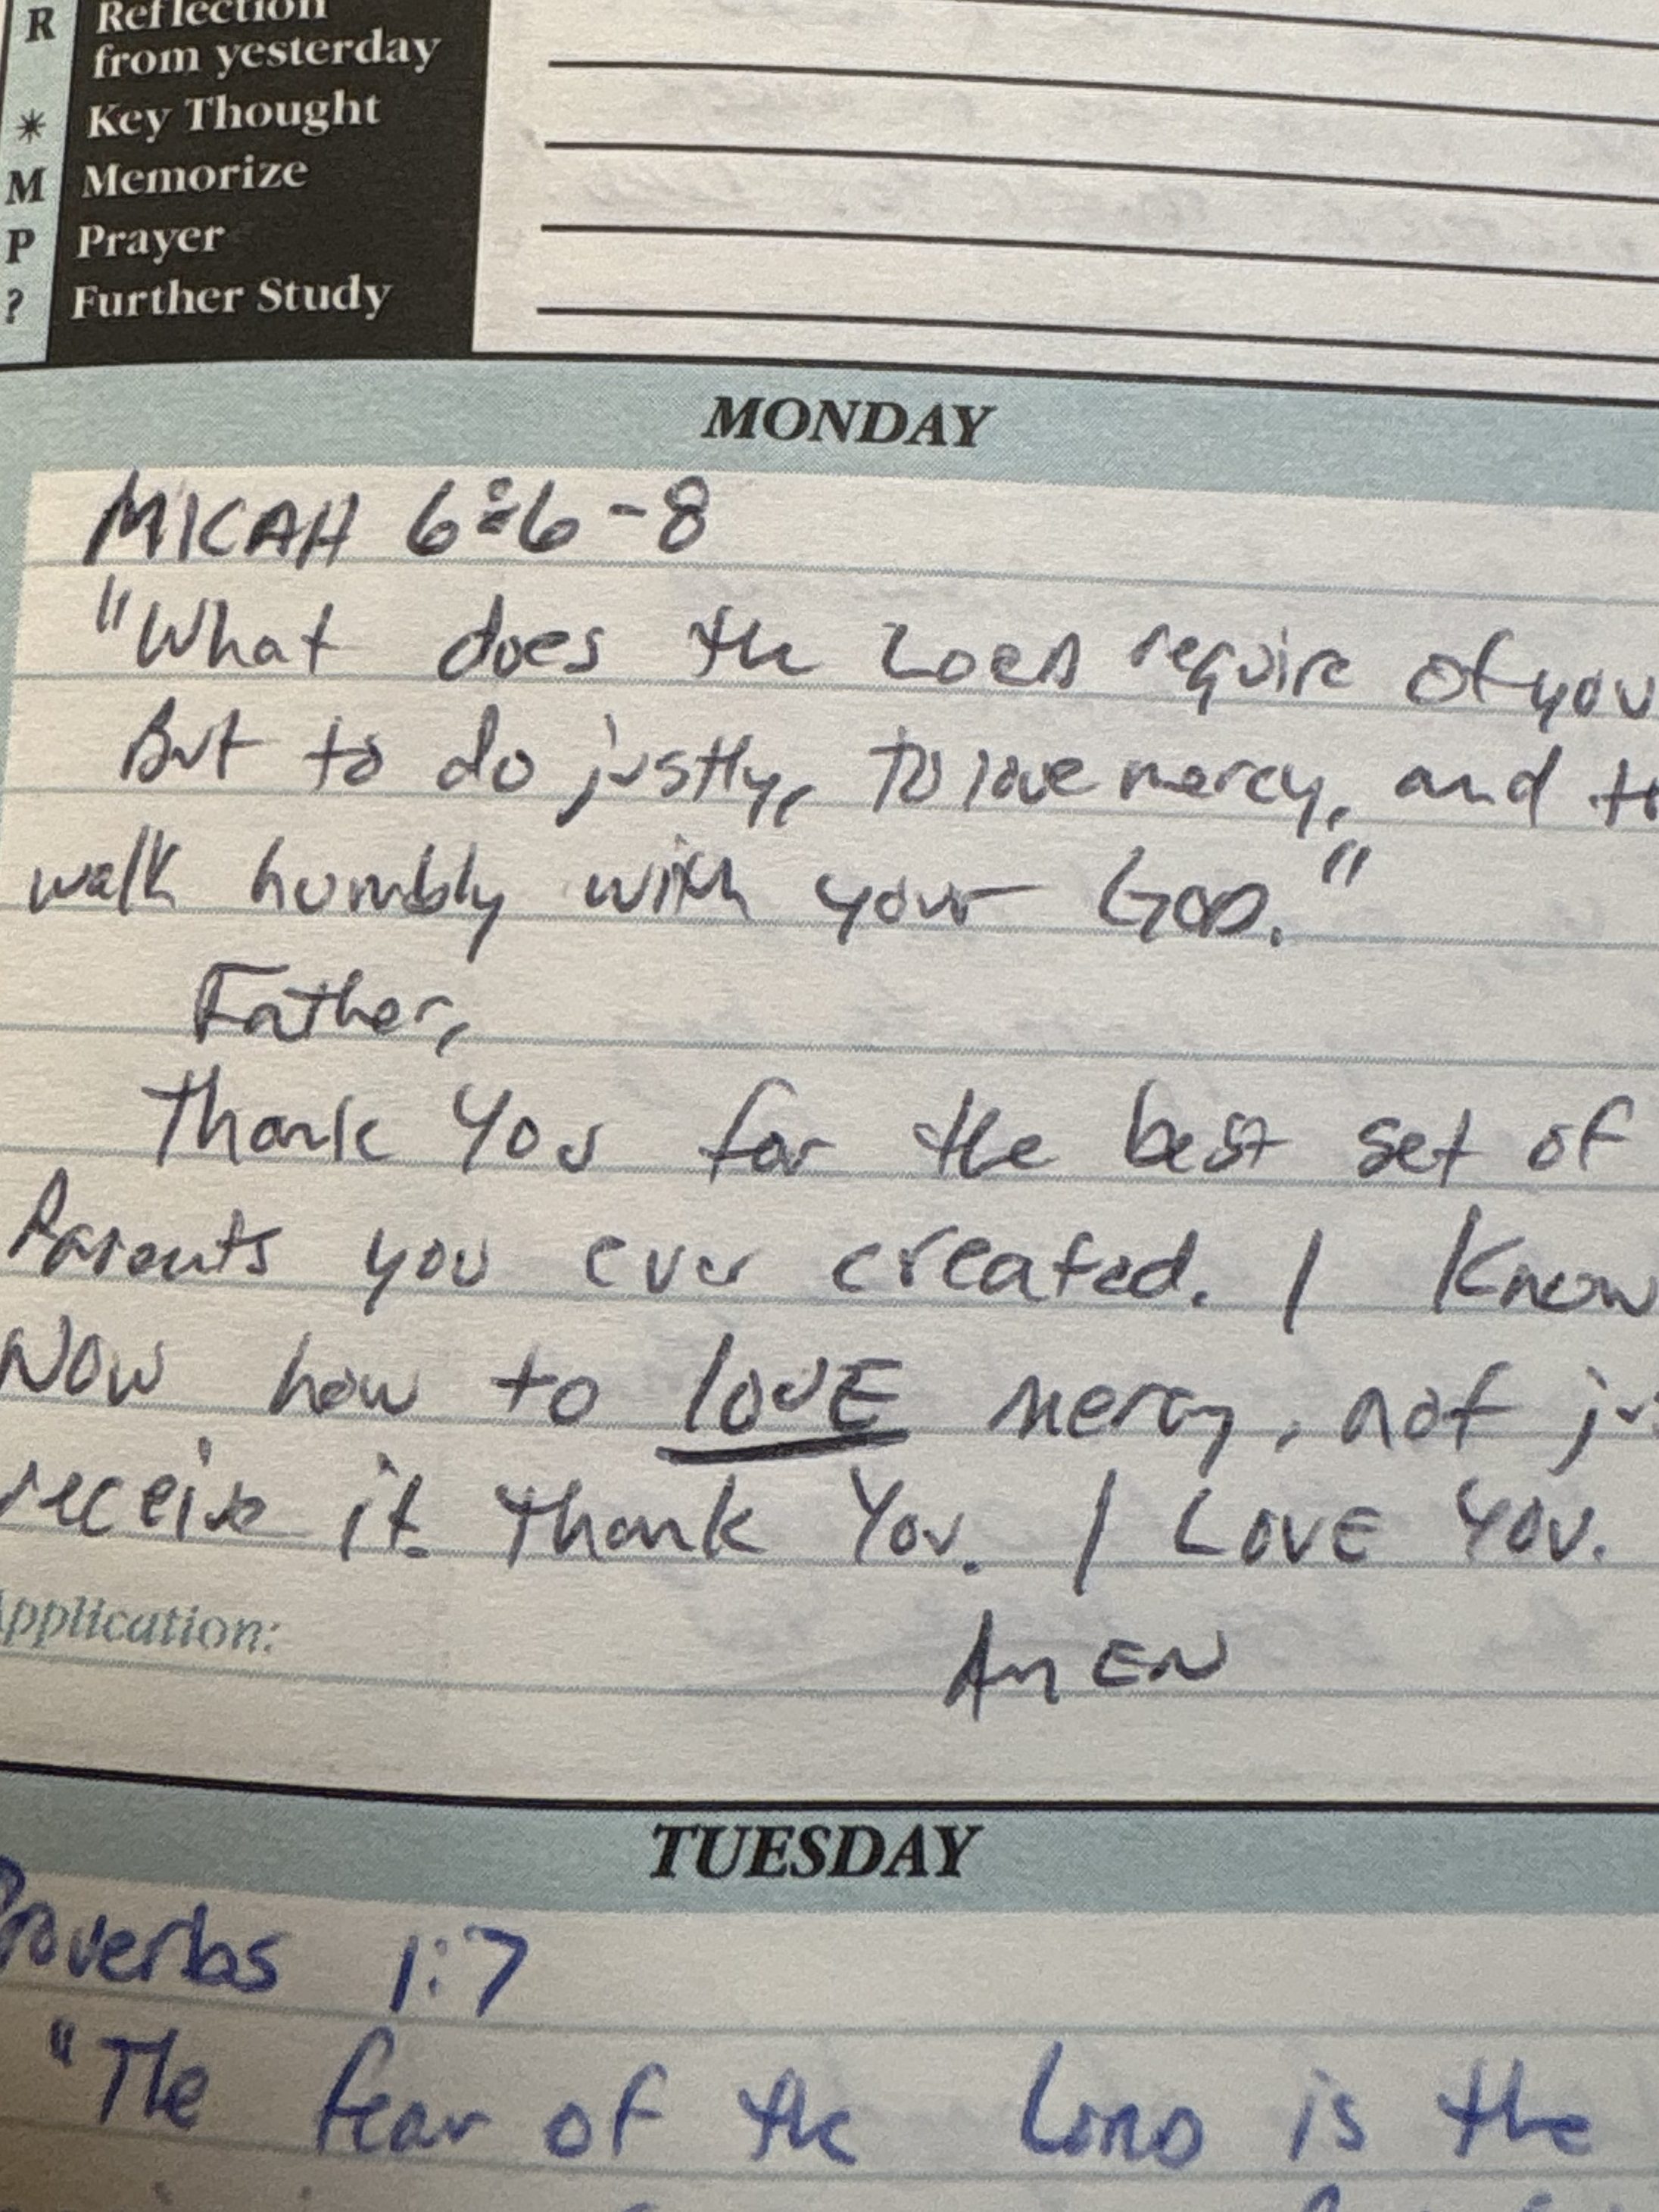 R Reflection
from yesterday
* Key Thought
M Memorize
P Prayer
? Further Study
MONDAY
MICAH 6:6-8
"What does the LORD require of you
But to do justly, to love mercy, and to
walk humbly with your GOD."
Father,
Thank You for the best set of
Parents you ever created. I Know
NOW how to lovE mercy, not ju
receive it. Thank You. I LOVE YOU.
Application:
AMEN
TUESDAY
Proverbs 1:7
"The fear of the LORD is the